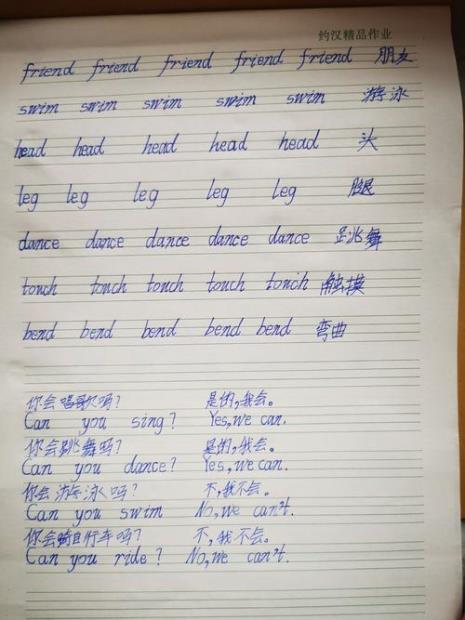 约汉精品作业
friend friend friend friend friend 朋友
swim swim swim swim swim 游泳
head head head head head 头
leg leg leg leg leg 腿
dance dance dance dance dance 跳舞
touch touch touch touch touch 触摸
bend bend bend bend bend 弯曲
你会唱歌吗? 是的,我会。
Can you sing? Yes,we can.
你会跳舞吗? 是的,我会。
Can you dance? Yes,we can.
你会游泳吗? 不,我不会。
Can you swim No,we can't.
你会骑自行车吗? 不,我不会。
Can you ride? No,we can't.